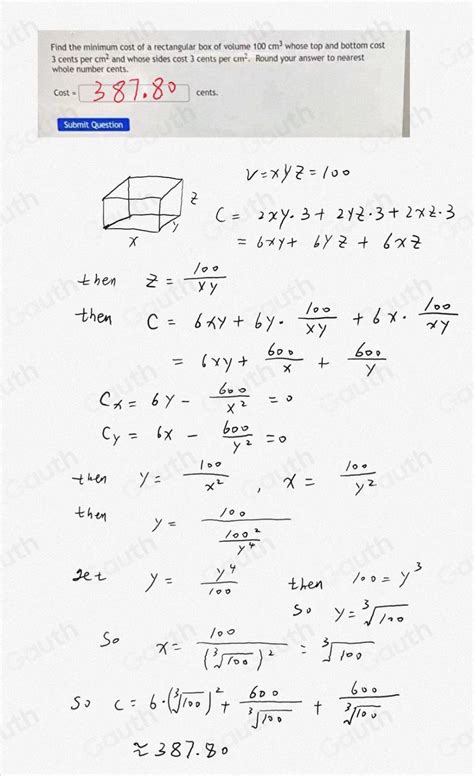 Find the minimum cost of a rectangular box of volume 100 cm³ whose top and bottom cost
3 cents per cm² and whose sides cost 3 cents per cm². Round your answer to nearest
whole number cents.
Cost = 387.80 cents.
Submit Question
V=xyz=100
z
C = 2xy·3+2yz·3+2xz·3
y
x
= 6xy+ 6yz + 6xz
then z = 100/xy
then C = 6xy+6y·100/xy +6x·100/xy
= 6xy+ 600/x + 600/y
Cx = 6y - 600/x² =0
Cy = 6x - 600/y² =0
then y= 100/x² , x = 100/y²
then y = 100/(100²/y⁴)
get y = y⁴/100 then 100=y³
so y=∛100
So x= 100/(∛100)² = ∛100
So C= 6·(∛100)²+ 600/∛100 + 600/∛100
≈387.80
Gauth